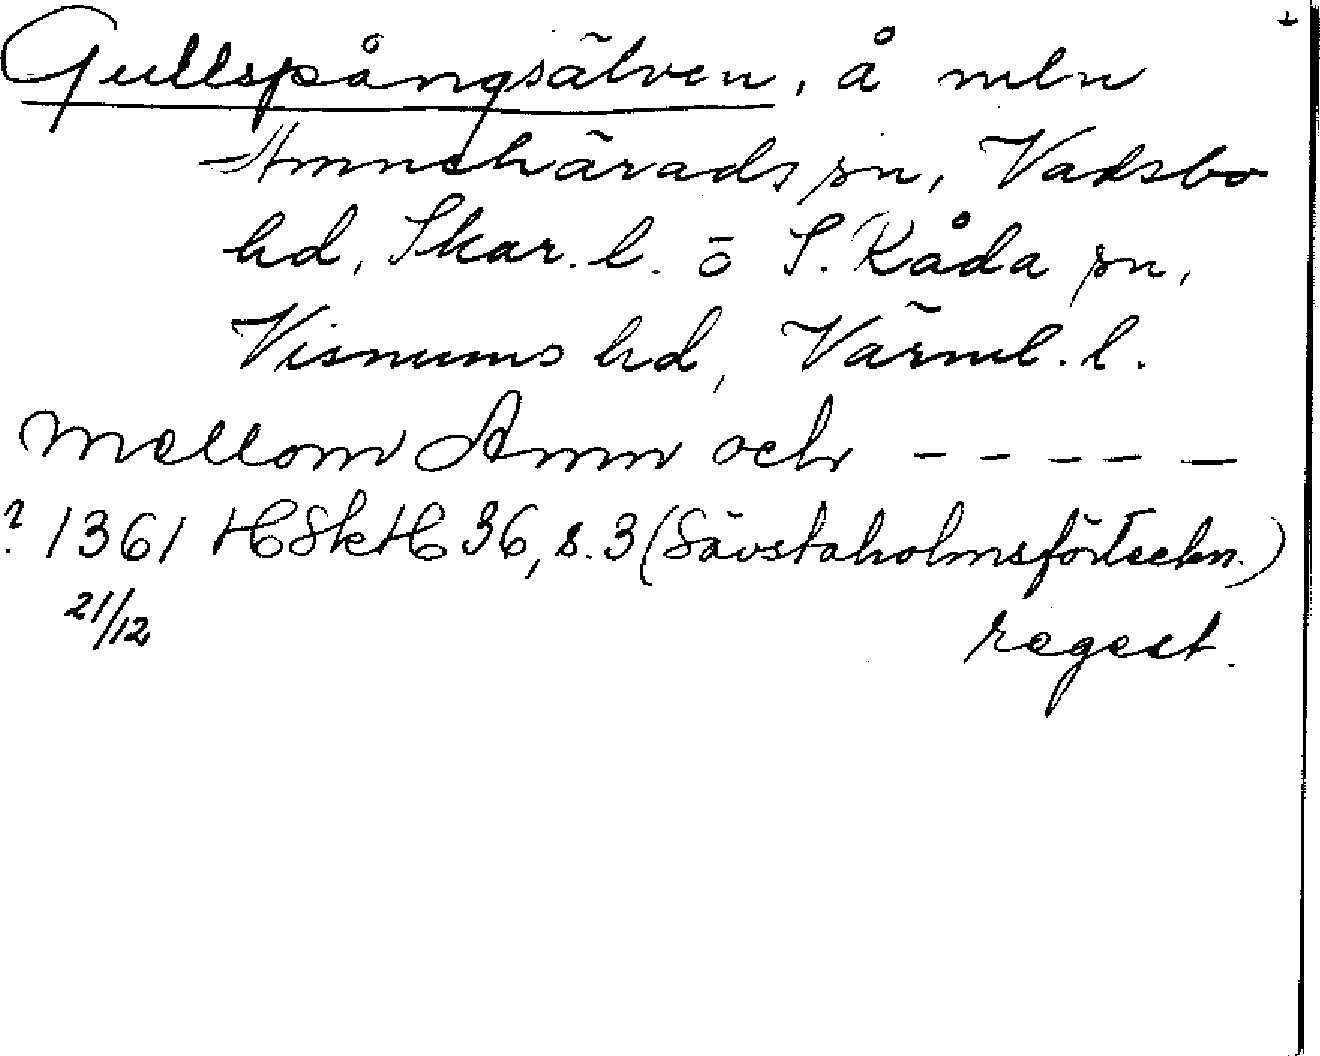 Gullspångsälven, å mln
Amnehärads sn, Vadsbo
hd, Skar. l. o S. Råda sn,
Visnums hd, Värml. l.
Mællom Amn och - - - - -
? 1361 HSkH 36, s. 3 (Sävstaholmsförteckn.)
21/12 regest.